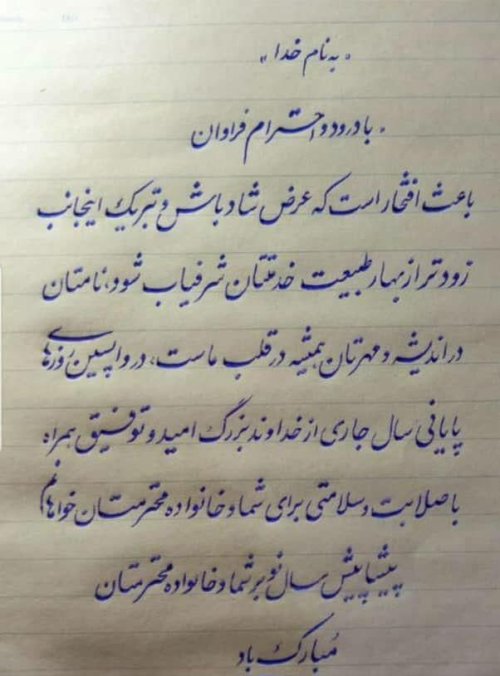 « به نام خدا »
. با درود و احترام فراوان .
باعث افتخار است که عرض شادباش و تبریک اینجانب
زودتر از بهار طبیعت خدمتتان شرفیاب شود، نامتان
در اندیشه و مهرتان همیشه در قلب ماست، در واپسین روزهای
پایانی سال جاری از خداوند بزرگ امید و توفیق همراه
با صلابت و سلامتی برای شما و خانواده محترمتان خواهانم
پیشاپیش سال نو بر شما و خانواده محترمتان
مُبارک باد